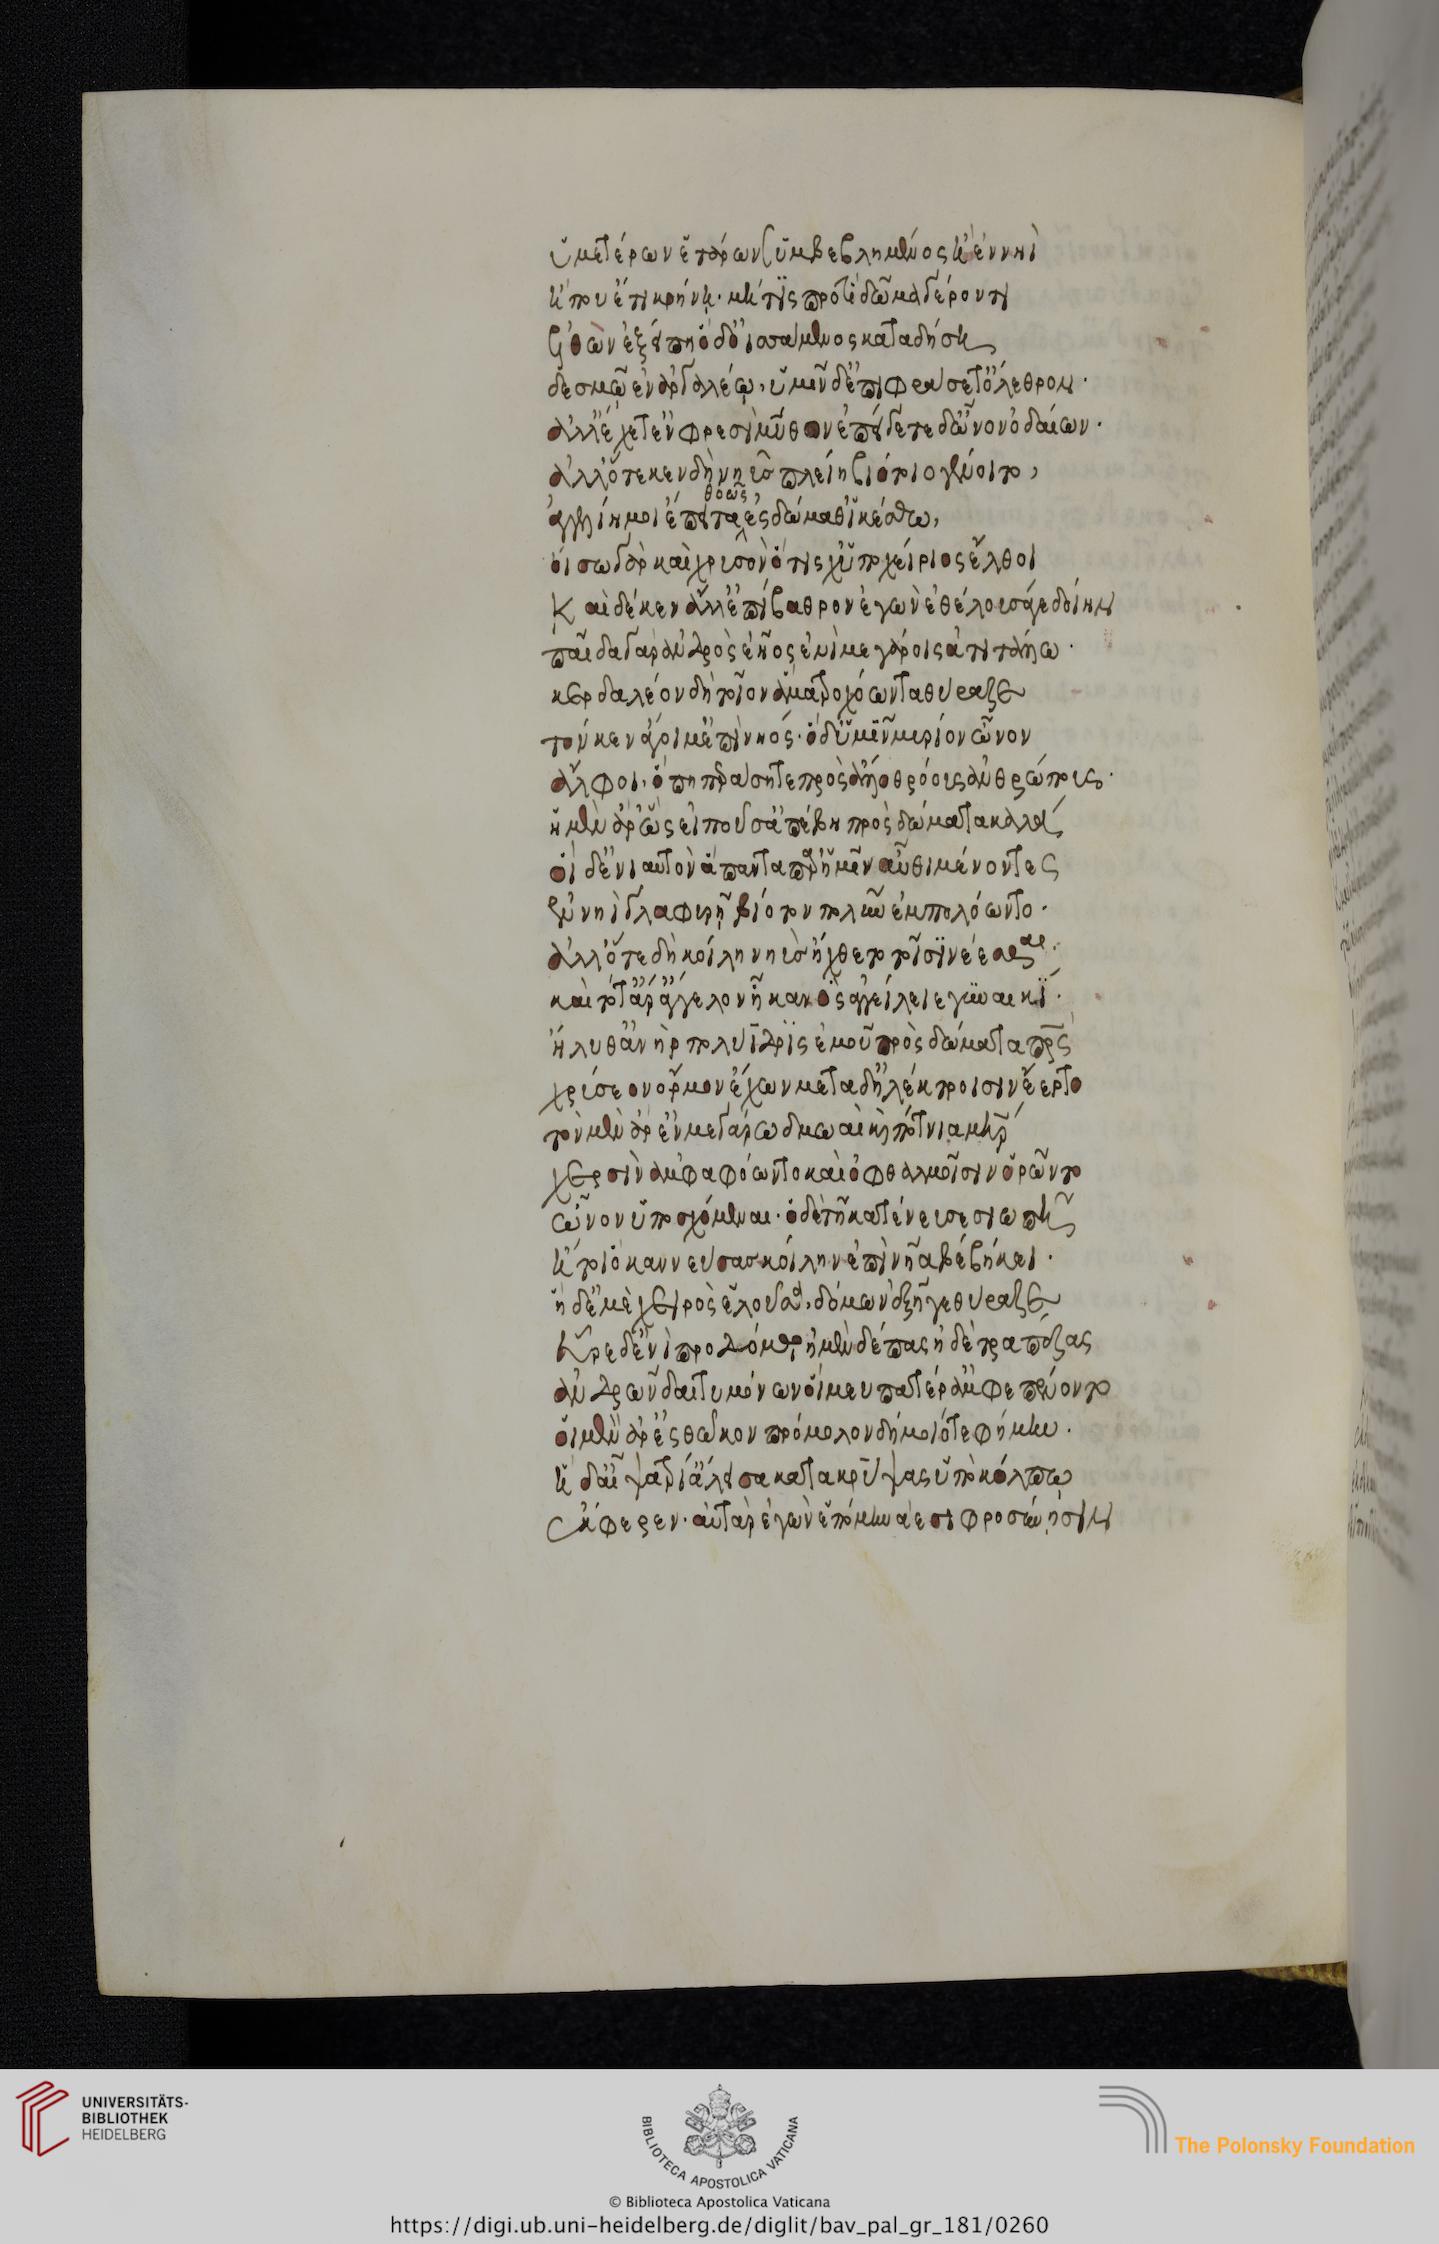 ὑμετέρων ἑτάρων ξυμβεβλημένος ἢ ἐν ἀγυιῇ
ἤ που ἐπὶ κρήνῃ· μή τις προτὶ δῶμα γέροντι
ἐλθὼν ἐξείπῃ ὁ δ' ὀϊσάμενος καταδήσῃ
δεσμῷ ἐν ἀργαλέῳ, ὑμῖν δ' ἐπιφράσσετ' ὄλεθρον·
ἀλλ' ἔχετ' ἐν φρεσὶ μῦθον ἐπείγετε δ' ὦνον ὁδαίων·
ἀλλ' ὅτε κεν δὴ νηῦς πλείη βιότοιο γένοιτο,
ἀγγελίη μοι ἔπειτα θοῶς ἐς δώμαθ' ἱκέσθω,
οἴσω γὰρ καὶ χρυσὸν ὅτις χ' ὑποχείριος ἔλθοι
Καὶ δέ κεν ἄλλ' ἐπίβαθρον ἐγὼν ἐθέλουσά γε δοίην
παῖδα γὰρ ἀνδρὸς ἑῆος ἐνὶ μεγάροις ἀτιτάλλω·
κερδαλέον δὴ τοῖον ἅμα τροχόωντα θύραζε
τόν κεν ἄγοιμ' ἐπὶ νηός· ὁ δ' ὑμῖν μυρίον ὦνον
ἄλφοι, ὅπῃ περάσητε πρὸς ἀλλοθρόους ἀνθρώπους·
ἡ μὲν ἄρ' ὣς εἰποῦσ' ἀπέβη πρὸς δώματα καλά
οἱ δ' ἐνιαυτὸν ἅπαντα παρ' ἡμῖν αὖθι μένοντες
ἐν νηῒ γλαφυρῇ βίοτον πολὺν ἐμπολόωντο·
ἀλλ' ὅτε δὴ κοίλη νηῦς ἤχθετο τοῖσι νέεσθαι·
καὶ τότ' ἄρ' ἄγγελον ἧκαν ὃς ἀγγείλειε γυναικί·
ἤλυθ' ἀνὴρ πολύϊδρις ἐμοῦ πρὸς δώματα πατρός
χρύσεον ὅρμον ἔχων μετὰ δ' ἠλέκτροισιν ἔερτο
τὸν μὲν ἄρ' ἐν μεγάρῳ δμωαὶ καὶ πότνια μήτηρ
χερσὶν ἀμφαφόωντο καὶ ὀφθαλμοῖσιν ὁρῶντο
ὦνον ὑποσχόμεναι· ὁ δὲ τῇ κατένευσε σιωπῇ
ἤτοι ὁ καννεύσας κοίλην ἐπὶ νῆα βεβήκει·
ἡ δ' ἐμὲ χειρὸς ἑλοῦσα, δόμων ἐξῆγε θύραζε
εὗρε δ' ἐνὶ προδόμῳ ἠμὲν δέπας ἠδὲ τραπέζας
ἀνδρῶν δαιτυμόνων οἵ μευ πατέρ' ἀμφεπένοντο
οἱ μὲν ἄρ' ἐς θῶκον πρόμολον δήμοιό τε φῆμιν·
ἡ δ' αἶψα τρί' ἄλεισα κατακρύψασ' ὑπὸ κόλπῳ
ἔκφερεν· αὐτὰρ ἐγὼν ἑπόμην ἀεσιφροσύνῃσιν
UNIVERSITÄTS-
BIBLIOTHEK
HEIDELBERG
BIBLIOTECA APOSTOLICA VATICANA
The Polonsky Foundation
© Biblioteca Apostolica Vaticana
https://digi.ub.uni-heidelberg.de/diglit/bav_pal_gr_181/0260